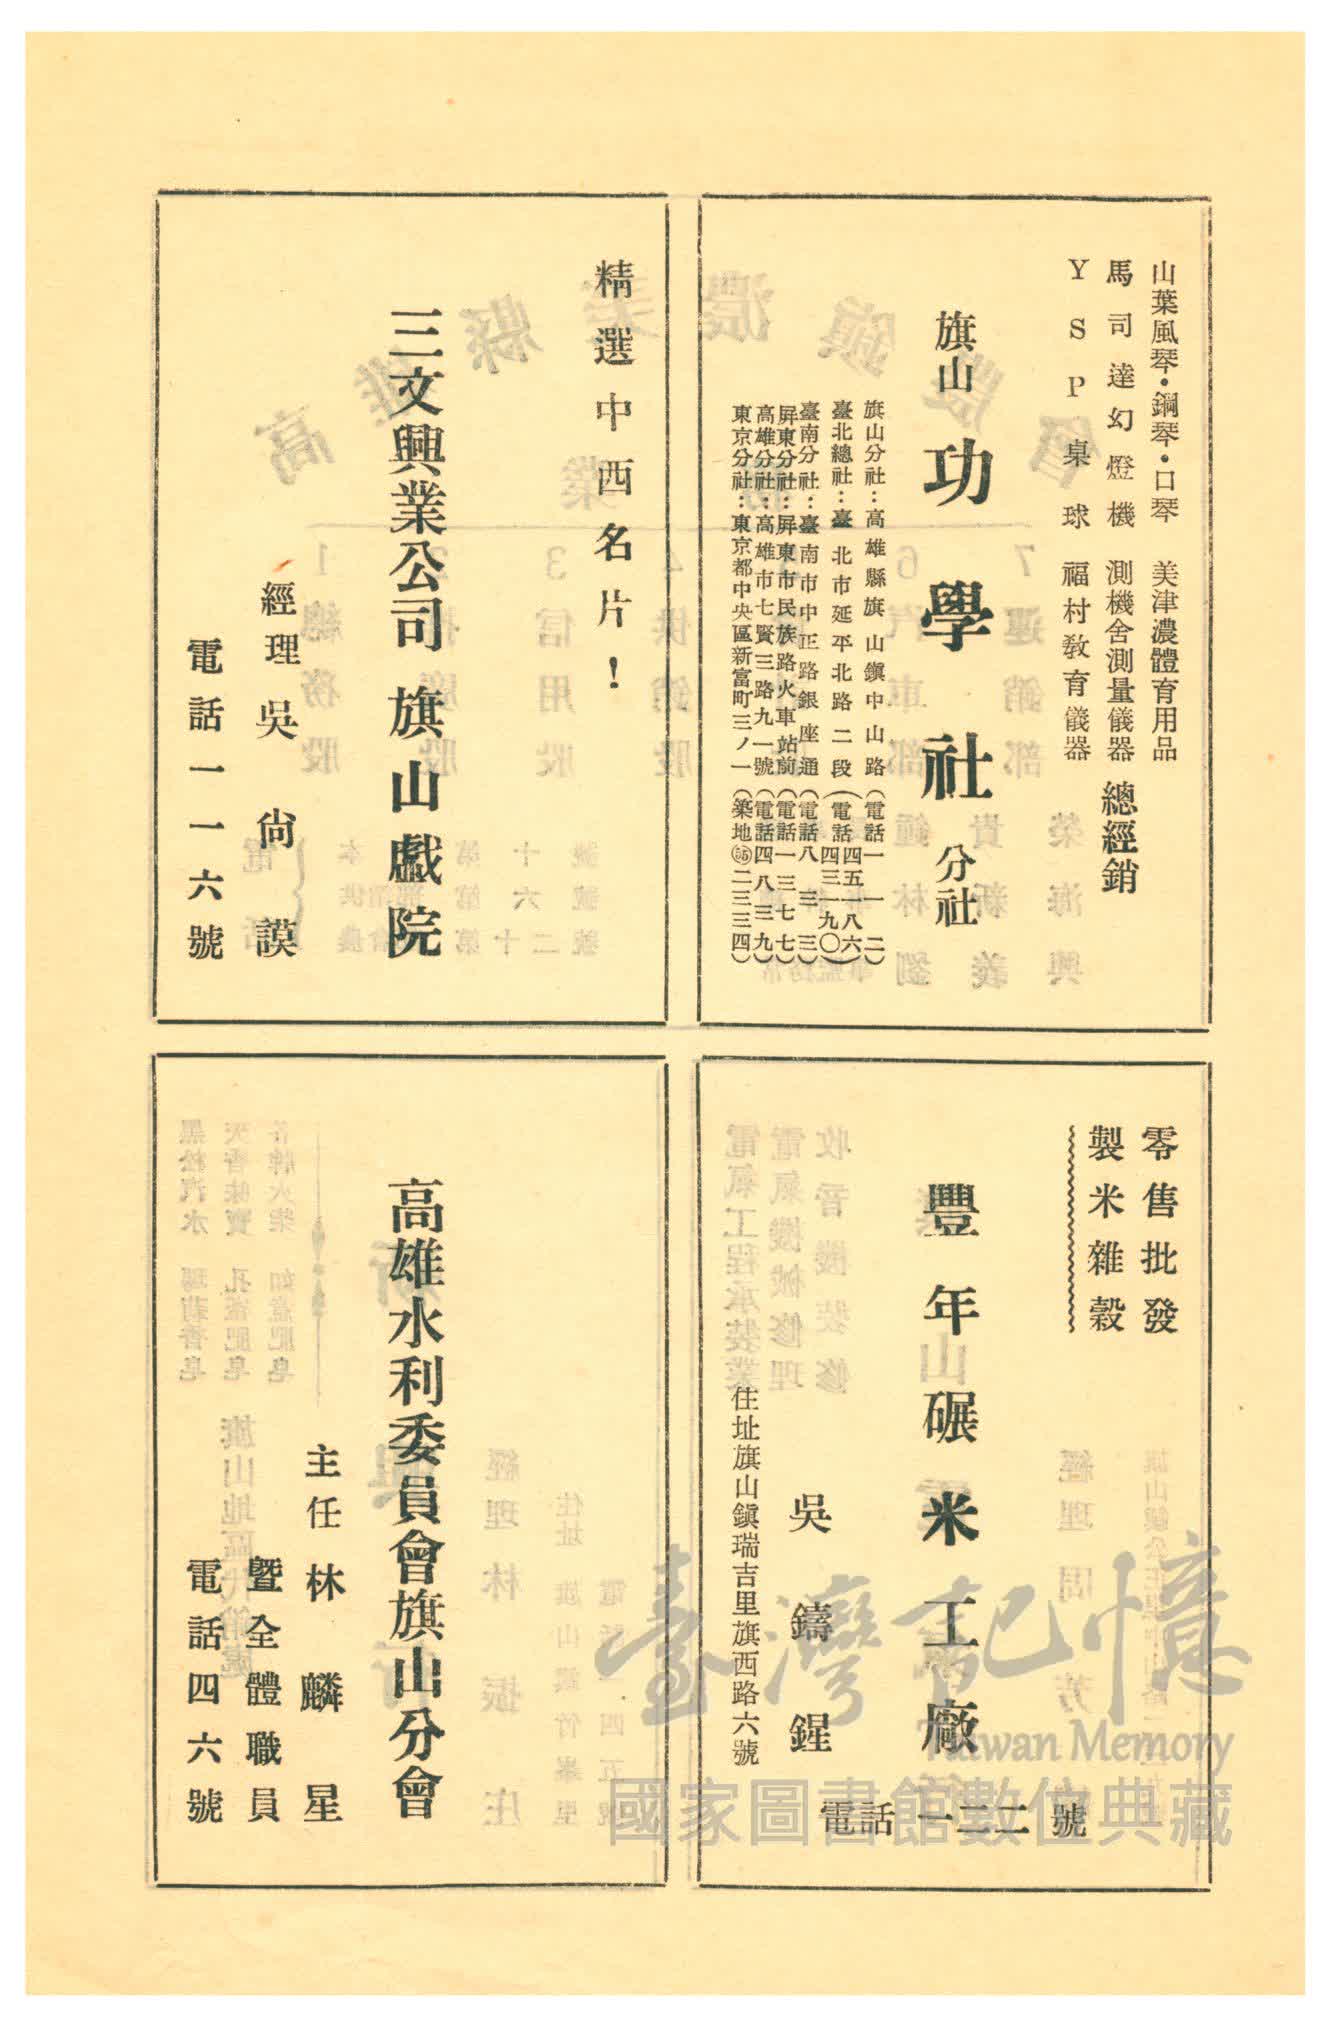 山葉風琴・鋼琴・口琴 美津濃體育用品
馬司達幻燈機 測機舍測量儀器 總經銷
YSP桌球 福村教育儀器
旗山 功學社 分社
旗山分社：高雄縣旗山鎭中山路（電話一一二）
臺北總社：臺北市延平北路二段（電話四五一八六 四三一九〇）
臺南分社：臺南市中正路銀座通（電話八三三）
屏東分社：屏東市民族路火車站前（電話一三七七）
高雄分社：高雄市七賢三路九一號（電話四八三九）
東京分社：東京都中央區新富町三ノ一（築地㊺二三三四）
精選中西名片！
三文興業公司 旗山戲院
經理 吳尙謨
電話一一六號
零售批發
製米雜穀
豐年碾米工廠
吳鑄鍟
住址旗山鎭瑞吉里旗西路六號
電話 一三二 號
高雄水利委員會旗山分會
主任 林麟星
暨全體職員
電話四六號
臺灣記憶
Taiwan Memory
國家圖書館數位典藏